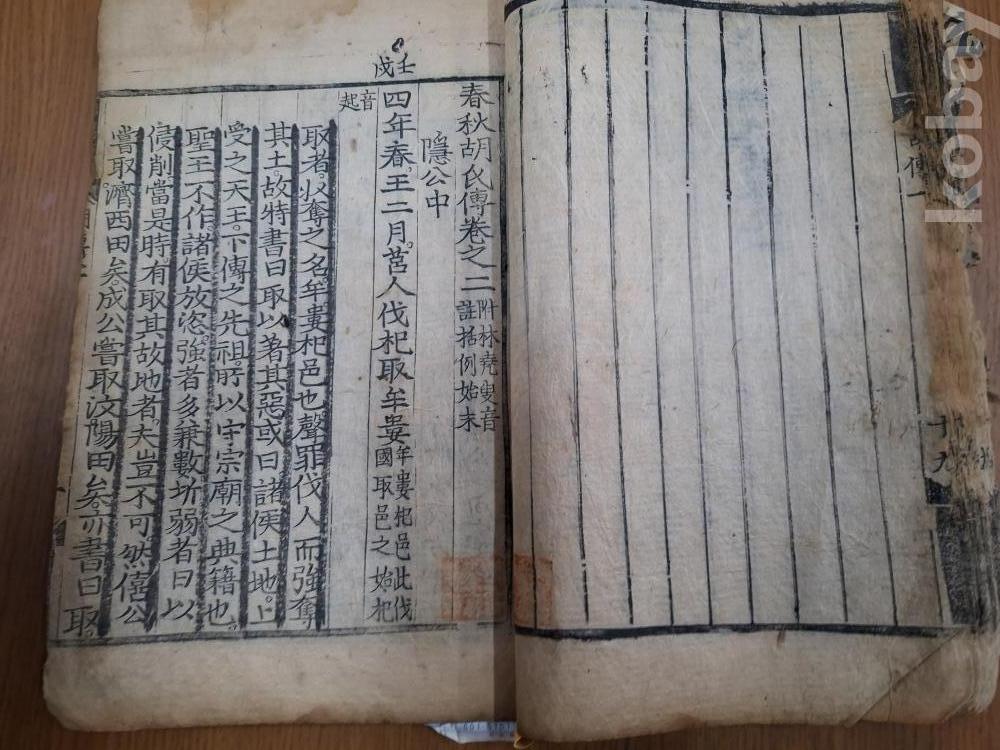 傳一
十九
春秋胡氏傳卷之二 附林堯叟音
註括例始末
隱公中
壬戌
四年春。王二月。莒人伐杞取牟婁 牟婁杞邑此伐
國取邑之始杞
音起
取者。收奪之名。牟婁杞邑也聲罪伐人而強奪
其土。故特書曰取以著其惡或曰。諸侯土地。上
受之天王。下傳之先祖。所以守宗廟之典籍也。
聖王不作。諸侯放恣。強者多兼數圻弱者日以
侵削當是時。有取其故地者。夫豈不可然僖公
嘗取濟西田矣。成公嘗取汶陽田矣。亦書曰取。
kobay